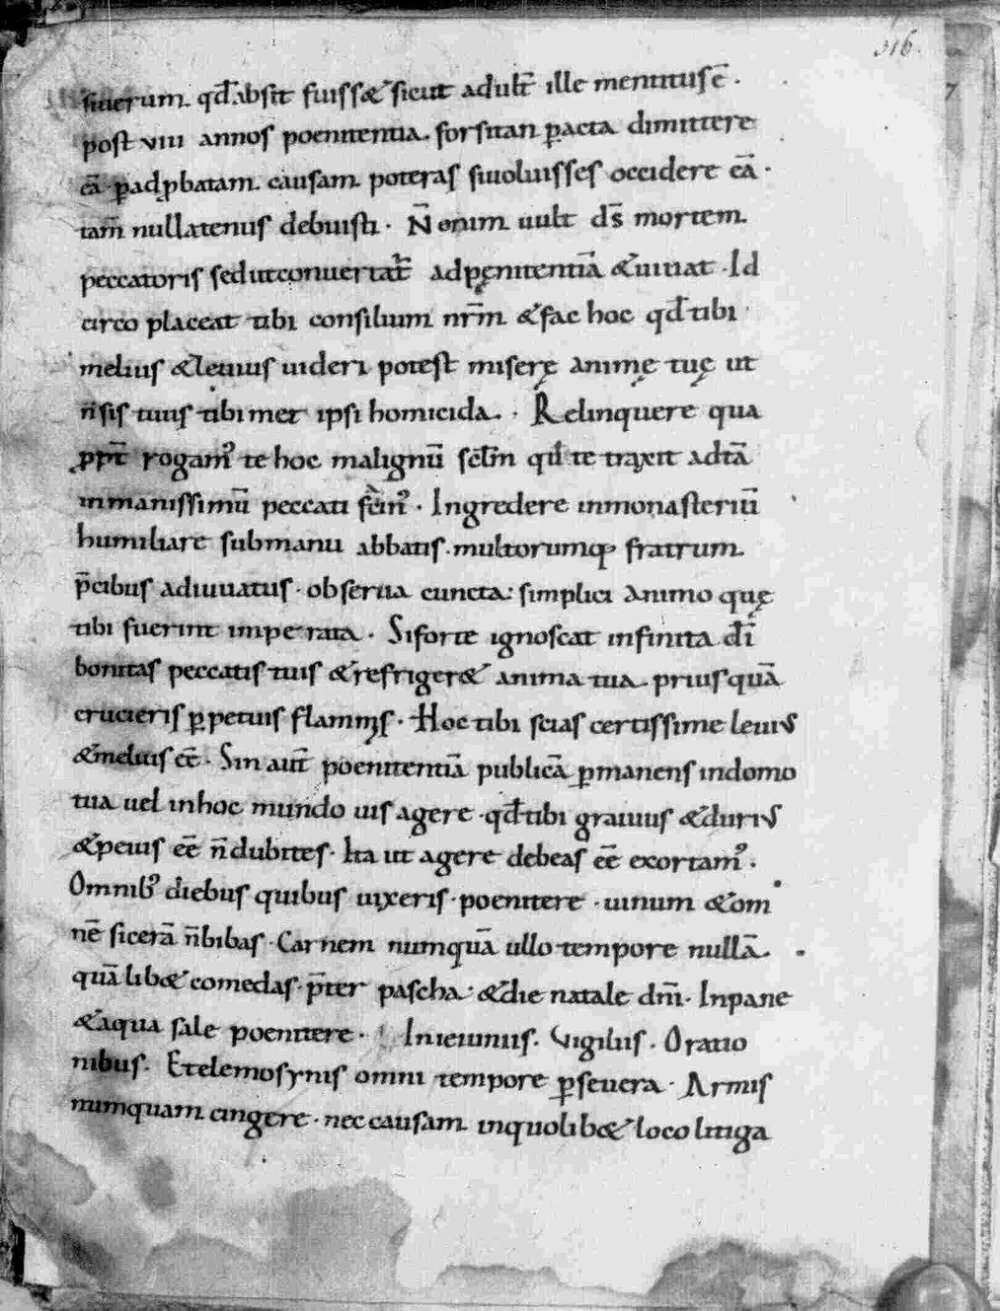 316.
si uerum. qđ absit fuiss& sicut adult̄ ille mentitus ē.
post viii annos poenitentia. forsitan ꝑacta dimittere
eā. ꝑ adꝓbatam causam poteras si uoluisses occidere eā.
tam̄ nullatenus debuisti. N̄ enim uult ds̄ mortem
peccatoris sed ut conuertat̄ ad pęnitentiā & uiuat. Id
circo placeat tibi consilium nr̄m & fac hoc qđ tibi
melius & leuius uideri potest miserę animę tuę ut
n̄ sis tuus tibimet ipsi homicida. Relinquere qua
ꝓpt̄ rogam᾿ te hoc malignū sc̄lm qđ te traxit ad tā
inmanissimū peccati facin᾿. Ingredere in monasteriū
humiliare sub manu abbatis. multorumq; fratrum
p̄cibus adiuuatus. obserua cuncta simplici animo quę
tibi fuerint imperata. Si forte ignoscat infinita dī
bonitas peccatis tuis & refriger& anima tua. priusquā
crucieris ꝑpetuis flammis. Hoc tibi scias certissime leuius
& melius eē. Sin aut̄ poenitentiā publicā ꝑmanens in domo
tua uel in hoc mundo uis agere. qđ tibi grauius & durius
& peius eē n̄ dubites. Ita ut agere debeas eē exortam᾿.
Omnib᾿ diebus quibus uixeris. poenitere. uinum & om
nē sicerā n̄ bibas. Carnem numquā ullo tempore nullā
quālib& comedas. p̄ter pascha. & die natale dn̄i. In pane
& aqua sale poenitere. In ieiuniis. Vigiliis. Oratio
nibus. Et elemosynis omni tempore ꝑseuera. Armis
numquam cingere. nec causam in quolib& loco litiga